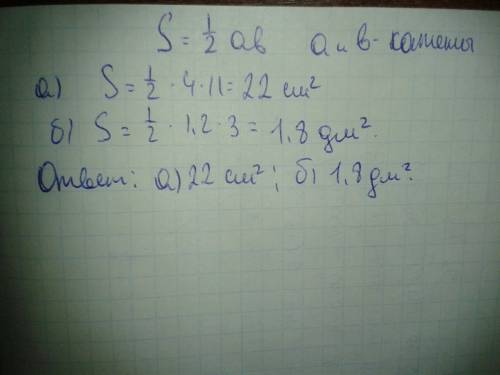 S = 1/2 ab  a и b - катеты
а) S = 1/2 · 4 · 11 = 22 см²
б) S = 1/2 · 1,2 · 3 = 1,8 дм².
Ответ: а) 22 см²; б) 1,8 дм².